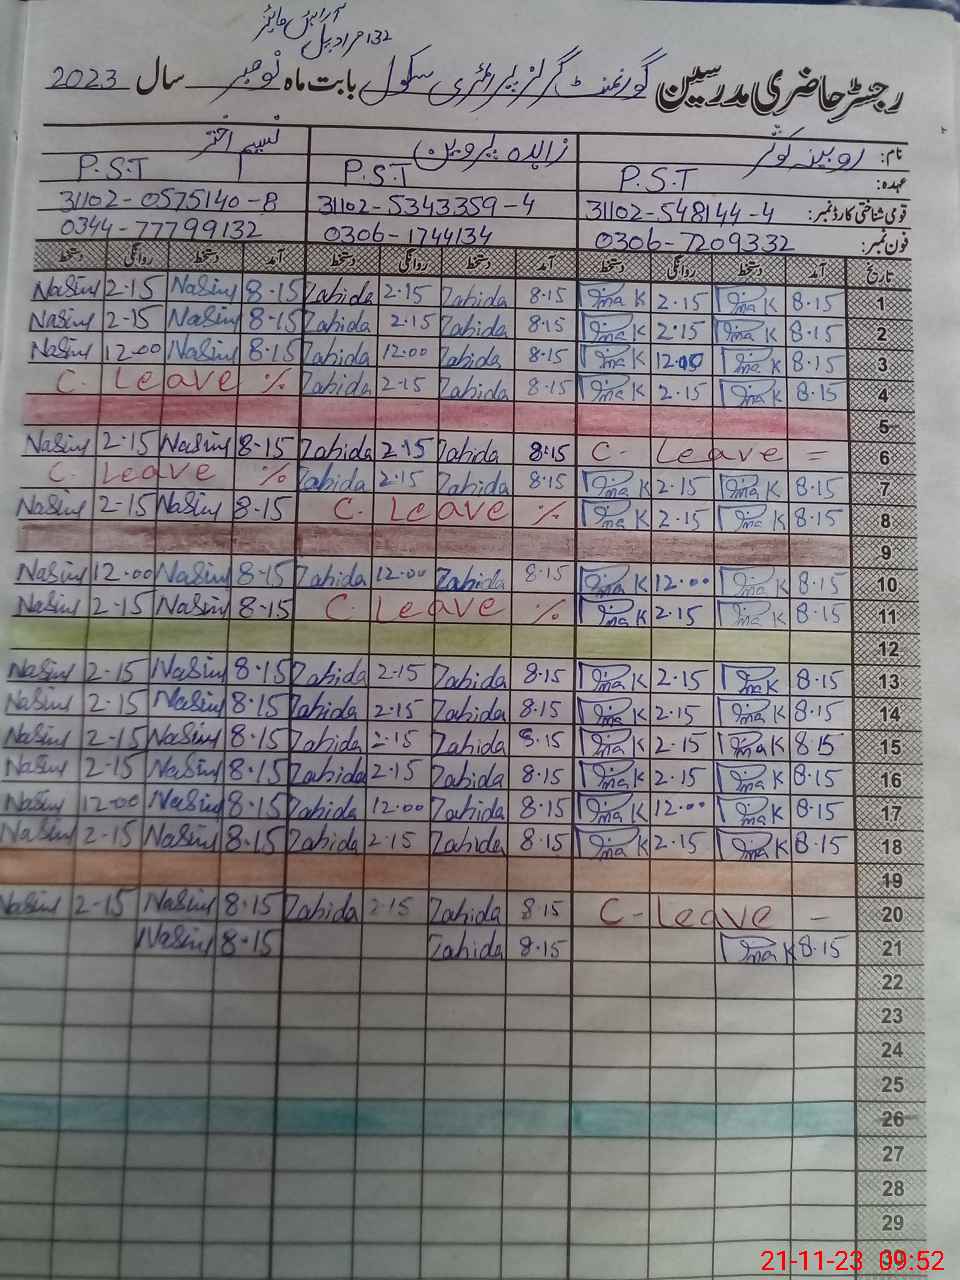 آرائیں وائز
132 مراد پل
رجسٹر حاضری مدرسین گورنمنٹ گرلز پرائمری سکول بابت ماہ نومبر سال 2023
نام: روبینہ کوثر زاہدہ پروین نسیم اختر
عہدہ: P.S.T P.S.T P.S.T
قومی شناختی کارڈ نمبر: 31102-548144-4 31102-5343359-4 31102-0575140-8
فون نمبر: 0306-7209332 0306-1744134 0344-77799132
تاریخ آمد دستخط روانگی دستخط آمد دستخط روانگی دستخط آمد دستخط روانگی دستخط
Nasim 2-15 Nasim 8-15 Zahida 2-15 Zahida 8-15 K 2-15 K 8-15 1
Nasim 2-15 Nasim 8-15 Zahida 2-15 Zahida 8-15 K 2-15 K 8-15 2
Nasim 12-00 Nasim 8-15 Zahida 12-00 Zahida 8-15 K 12-00 K 8-15 3
C. Leave % Zahida 2-15 Zahida 8-15 K 2-15 K 8-15 4
5
Nasim 2-15 Nasim 8-15 Zahida 2-15 Zahida 8-15 C. Leave = 6
C. Leave % Zahida 2-15 Zahida 8-15 K 2-15 K 8-15 7
Nasim 2-15 Nasim 8-15 C. Leave % K 2-15 K 8-15 8
9
Nasim 12-00 Nasim 8-15 Zahida 12-00 Zahida 8-15 K 12-00 K 8-15 10
Nasim 2-15 Nasim 8-15 C. Leave % K 2-15 K 8-15 11
12
Nasim 2-15 Nasim 8-15 Zahida 2-15 Zahida 8-15 K 2-15 K 8-15 13
Nasim 2-15 Nasim 8-15 Zahida 2-15 Zahida 8-15 K 2-15 K 8-15 14
Nasim 2-15 Nasim 8-15 Zahida 2-15 Zahida 8-15 K 2-15 K 8-15 15
Nasim 2-15 Nasim 8-15 Zahida 2-15 Zahida 8-15 K 2-15 K 8-15 16
Nasim 12-00 Nasim 8-15 Zahida 12-00 Zahida 8-15 K 12-00 K 8-15 17
Nasim 2-15 Nasim 8-15 Zahida 2-15 Zahida 8-15 K 2-15 K 8-15 18
19
Nasim 2-15 Nasim 8-15 Zahida 2-15 Zahida 8-15 C-Leave - 20
Nasim 8-15 Zahida 8-15 K 8-15 21
22
23
24
25
26
27
28
29
30
21-11-23 09:52